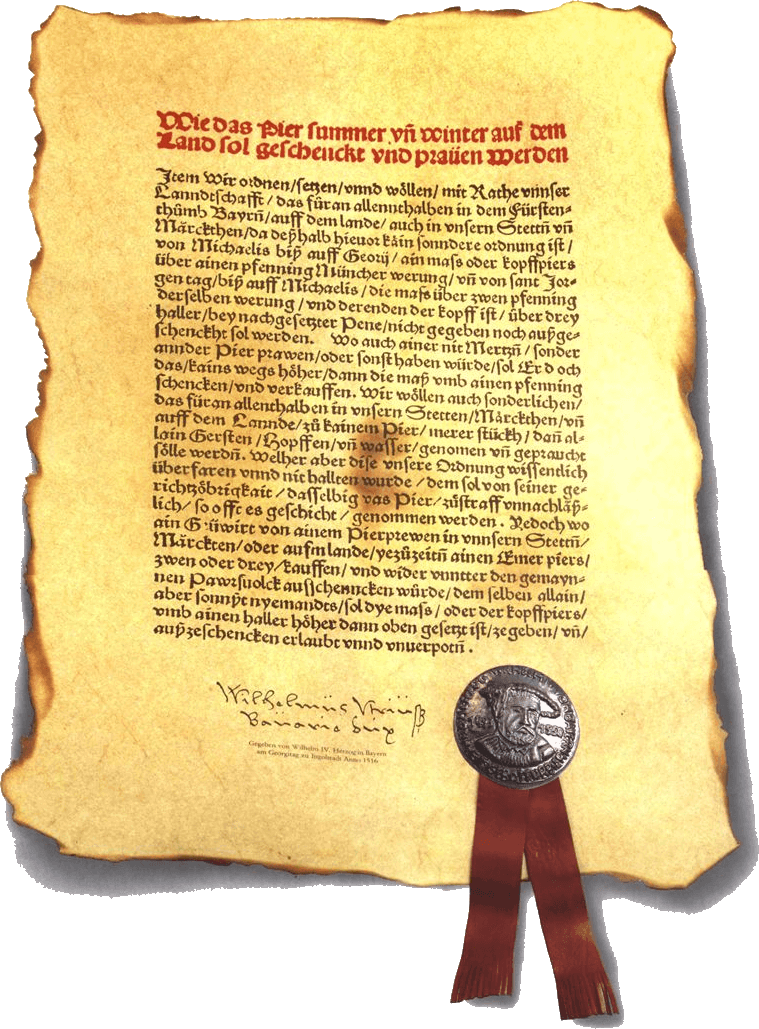 Wie das Pier summer vñ winter auf dem
Land sol geschenckt vnd praüen werden
Item Wir ordnen/setzen/vnnd wöllen/mit Rathe vnnser
Lanndtschafft/das füran allennthalben in dem Fürsten-
thûmb Bayrñ/auff dem lande/auch in vnsern Stettñ vñ
Märckthen/da deßhalb hieuor kain sonndere ordnung ist/
von Michaelis biß auff Georij/ain mass oder kopffpiers
über ainen pfenning Müncher werung/vñ von sant Jor-
gen tag/biß auff Michaelis/die mass über zwen pfenning
derselben werung/vnd derenden der kopff ist/über drey
haller/bey nachgesetzter Pene/nicht gegeben noch außge-
schenckht sol werden. Wo auch ainer nit Mertzñ/sonder
annder Pier prawen/oder sonst haben würde/sol Er doch
das/kains wegs höher/dann die maß vmb ainen pfenning
schencken/vnd verkauffen. Wir wöllen auch sonderlichen/
das füran allenthalben in vnsern Stetten/Märckthen/vñ
auff dem Lannde/zû kainem Pier/merer stückh/dañ al-
lain Gersten/Hopffen/vñ wasser/genomen vñ gepraucht
sölle werdñ. Welher aber dise vnsere Ordnung wissentlich
überfaren vnnd nit hallten wurde/dem sol von seiner ge-
richtzöbrigkait/dasselbig vas Pier/zûstraff vnnachläß-
lich/so offt es geschicht/genommen werden. Redoch wo
ain Güwirt von ainem Pierprewen in vnnsern Stettñ/
Märckten/oder aufm lande/yezûzeitñ ainen Emer piers/
zwen oder drey/kauffen/vnd wider vnntter den gemayn-
nen Pawrsuolck ausschenncken würde/dem selben allain/
aber sonnßt nyemandts/sol dye mass/oder der kopffpiers/
vmb ainen haller höher dann oben gesetzt ist/ze geben/vñ/
außzeschencken erlaubt vnnd vnuerpotñ.
Wilhelmüs
Gegeben von Wilhelm IV. Herzog in Bayern
am Georgitag zu Ingolstadt Anno 1516